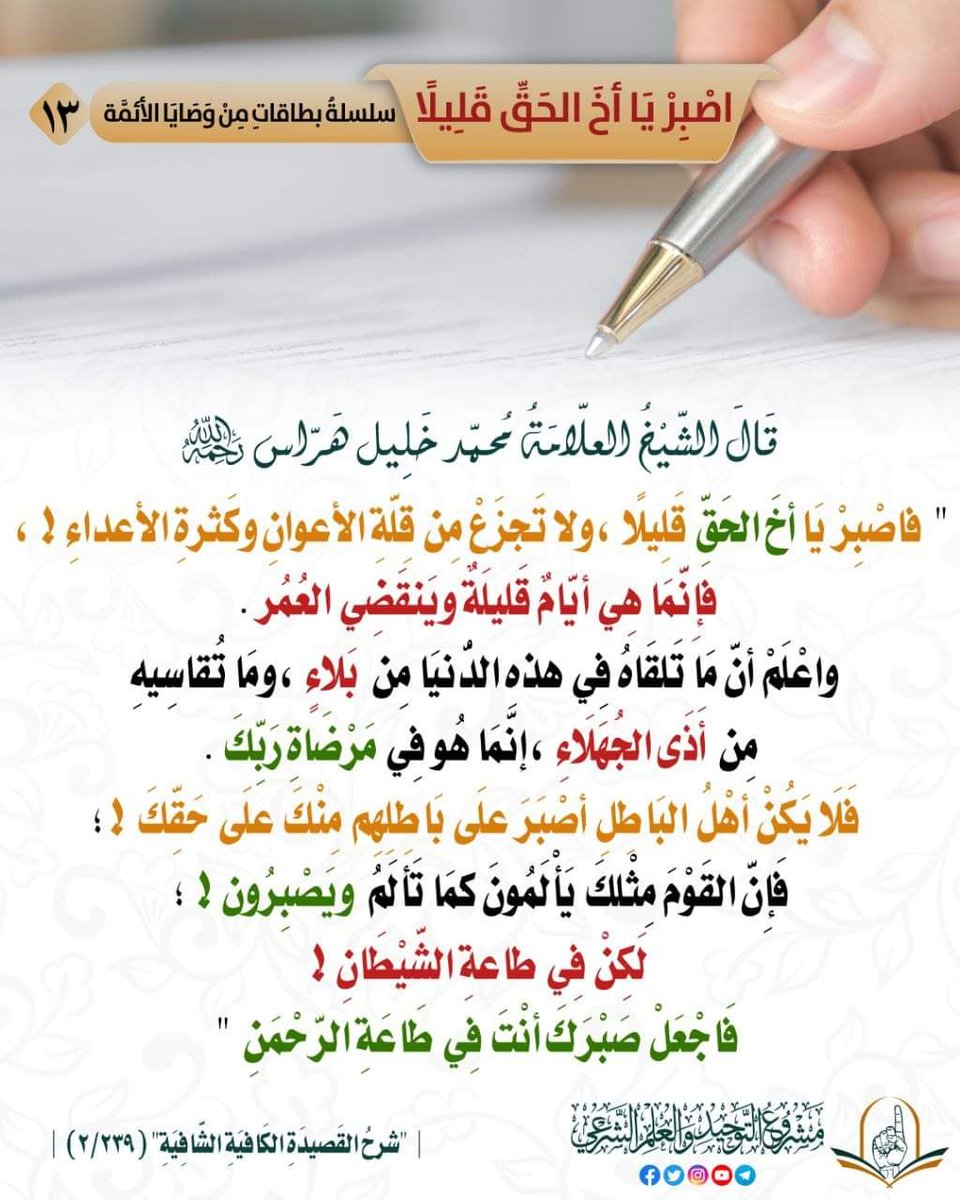 اصْبِرْ يَا أخَ الحَقِّ قَلِيلًا سلسلةُ بطاقاتٍ مِنْ وَصَايَا الأئمَّة ١٣
قَالَ الشّيْخُ العلّامَةُ مُحمّد خَلِيل هَرّاس رَحِمَهُ اللهُ
" فاصْبِرْ يَا أخَ الحَقِّ قَلِيلًا ، ولا تَجزَعْ مِن قِلّةِ الأعوانِ وكَثرةِ الأعداءِ ! ،
فإنّمَا هِي أيّامٌ قَليلَةٌ ويَنقَضِي العُمُر .
واعْلَمْ أنّ مَا تَلقَاهُ فِي هذه الدُّنيَا مِن بَلاءٍ ، ومَا تُقاسِيهِ
مِن أذَى الجُهَلَاءِ ، إنَّمَا هُو فِي مَرْضَاة رَبِّكَ .
فَلَا يَكُنْ أهْلُ البَاطلِ أصْبَرَ علَى بَاطِلِهِم مِنْكَ علَى حَقِّكَ ! ؛
فإِنّ القَوْمَ مِثْلكَ يَأْلَمُونَ كمَا تَألَمُ ويَصْبِرُون ! ؛
لَكِنْ فِي طاعةِ الشّيْطَانِ !
فَاجْعَلْ صَبْرَكَ أنْتَ فِي طَاعَةِ الرّحْمَنِ "
مَشْرُوعُ التَّوحِيدِ وَالعِلْمِ الشَّرْعِيِّ
| "شرحُ القَصيدَةِ الكَافيَةِ الشّافيَةِ" (٢/٢٣٩) |